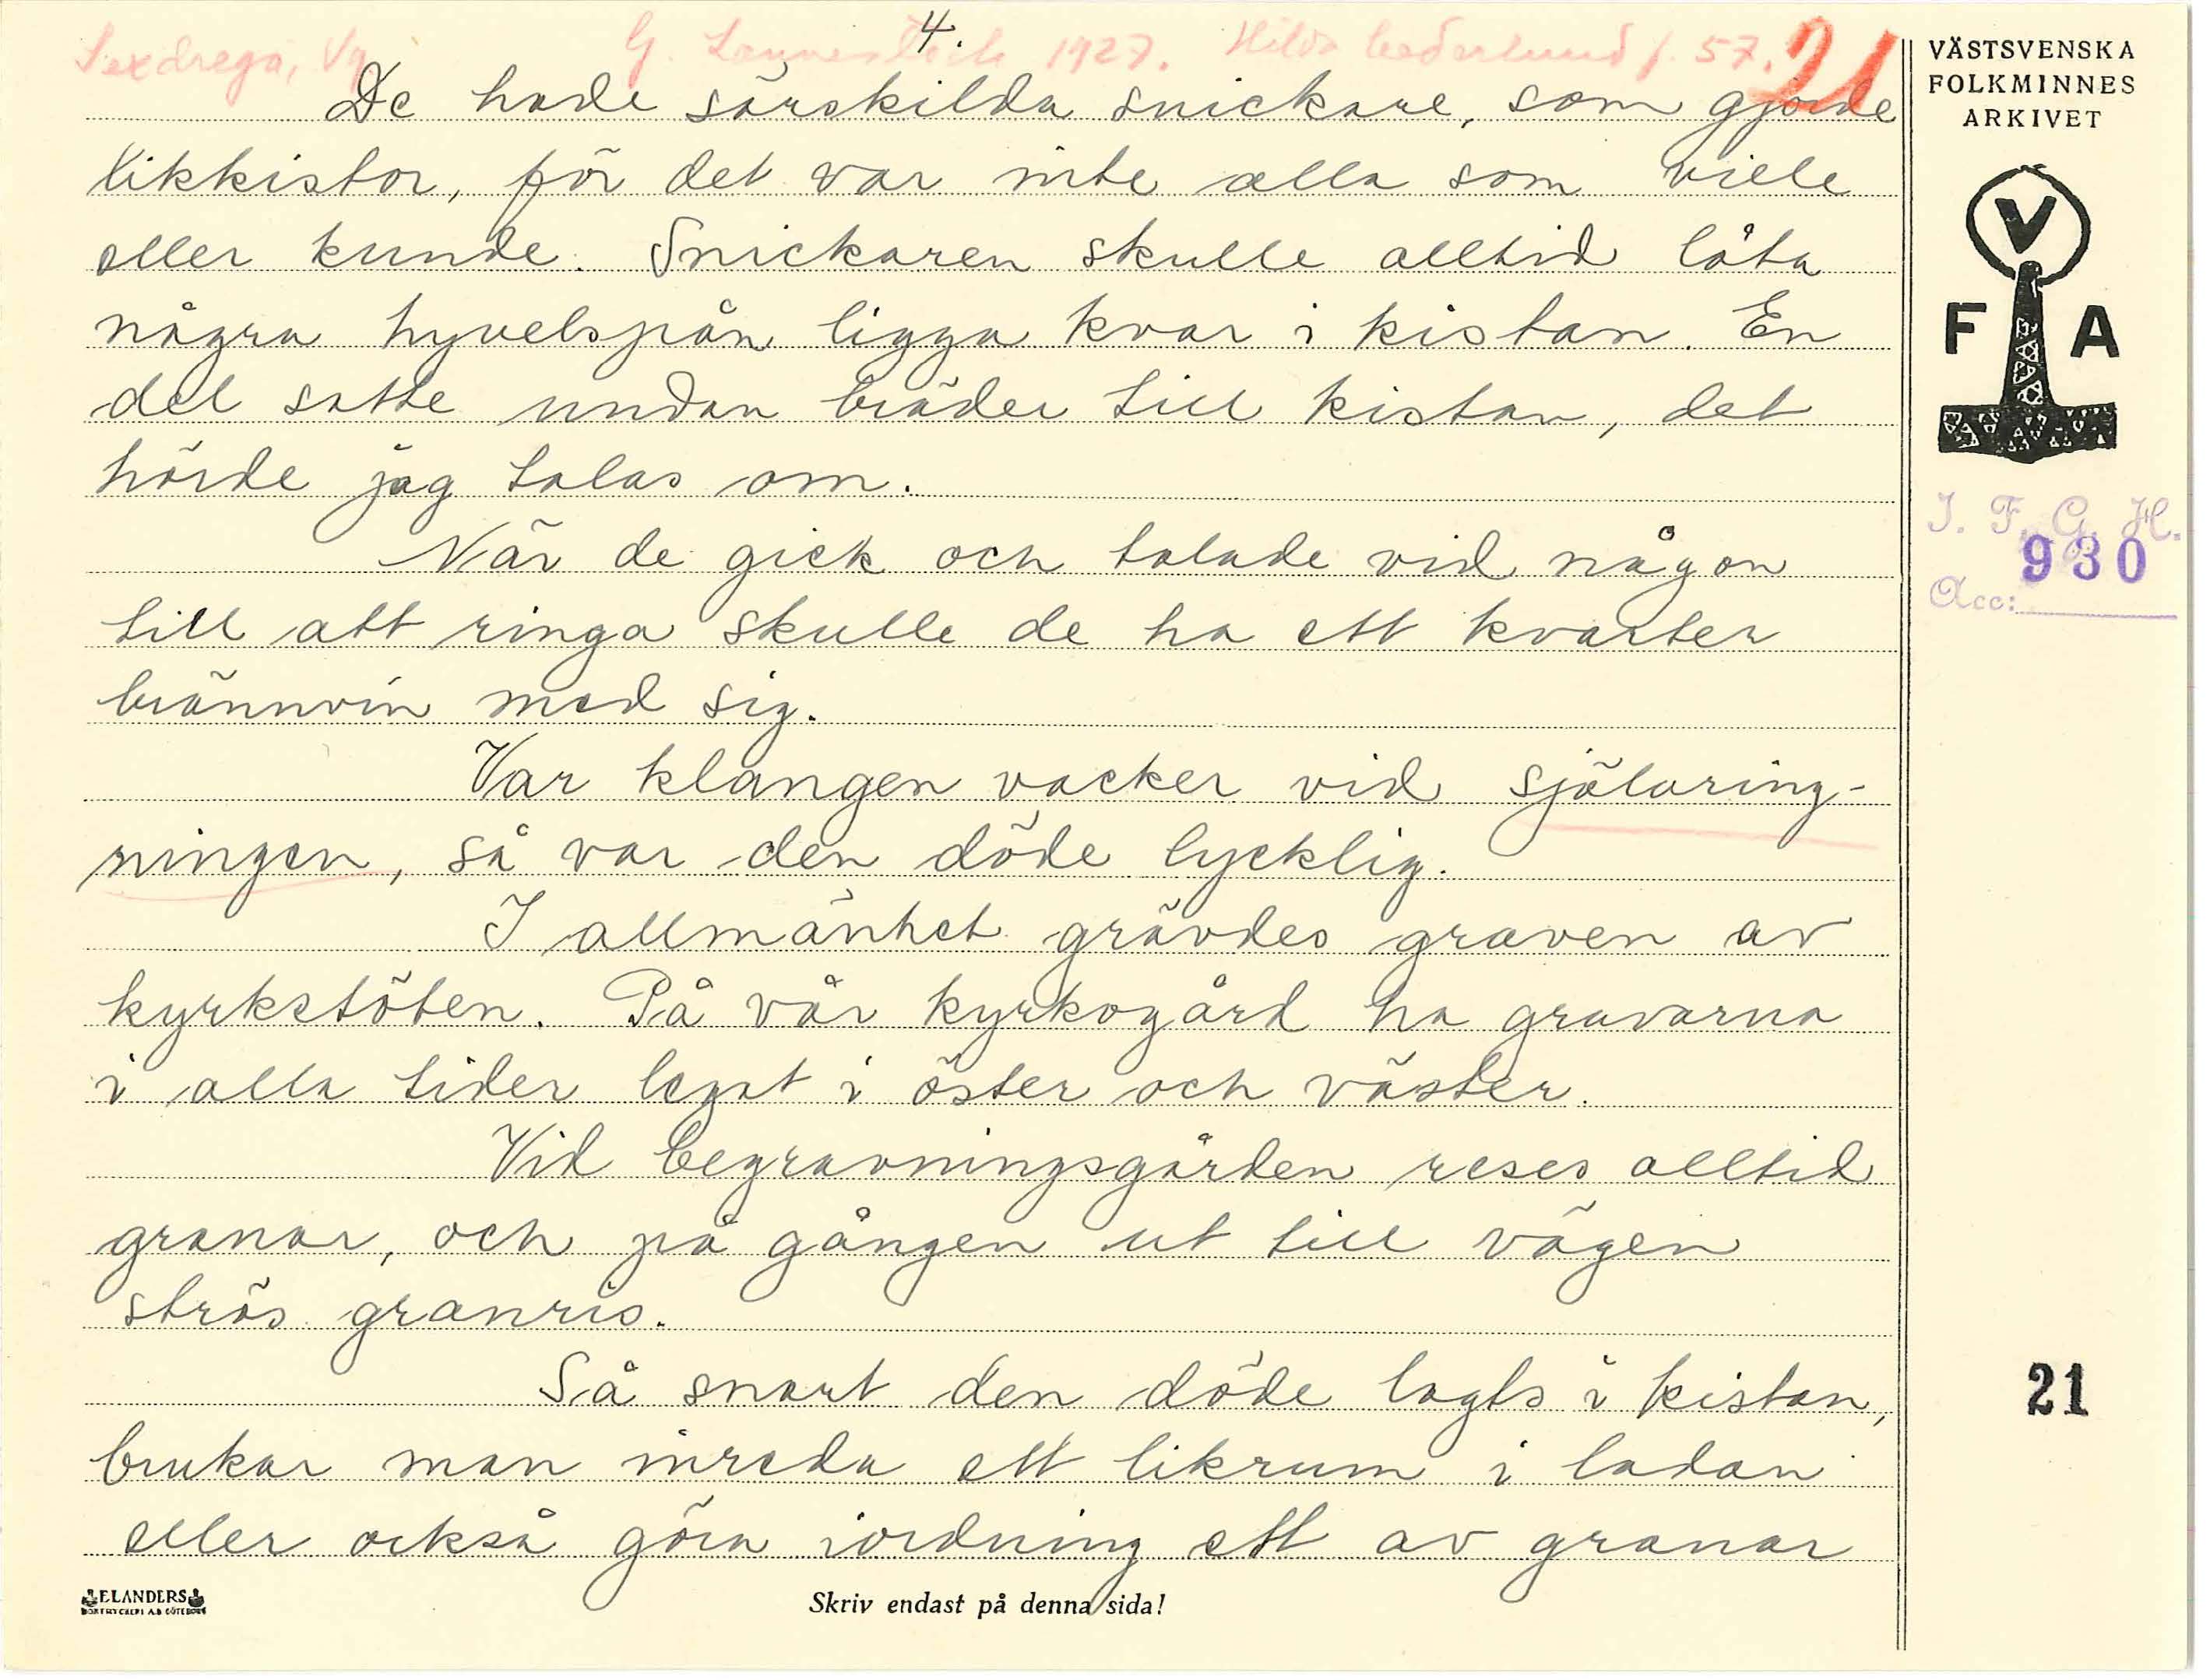 4.
Sexdrega, Vg. G. 1927. Hilda Cederlund f. 57. 21
De hade särskilda snickare, som gjorde
likkistor, för det var inte alla som ville
eller kunde. Snickaren skulle alltid låta
några hyvelspån ligga kvar i kistan. En
del satte undan bräder till kistan, det
hörde jag talas om.
När de gick och talade vid någon
till att ringa skulle de ha ett kvarter
brännvin med sig.
Var klangen vacker vid själaring-
ningen, så var den döde lycklig.
I allmänhet grävdes graven av
kyrkstöten. På vår kyrkogård ha gravarna
i alla tider legat i öster och väster.
Vid begravningsgården reses alltid
granar, och på gången ut till vägen
strös granris.
Så snart den döde lagts i kistan,
brukar man inreda ett likrum i ladan
eller också göra iordning ett av granar
ELANDERS
BOKTRYCKERI A.B. GÖTEBORG
Skriv endast på denna sida!
VÄSTSVENSKA
FOLKMINNES
ARKIVET
V
F A
I. F. G. H.
930
Acc:
21